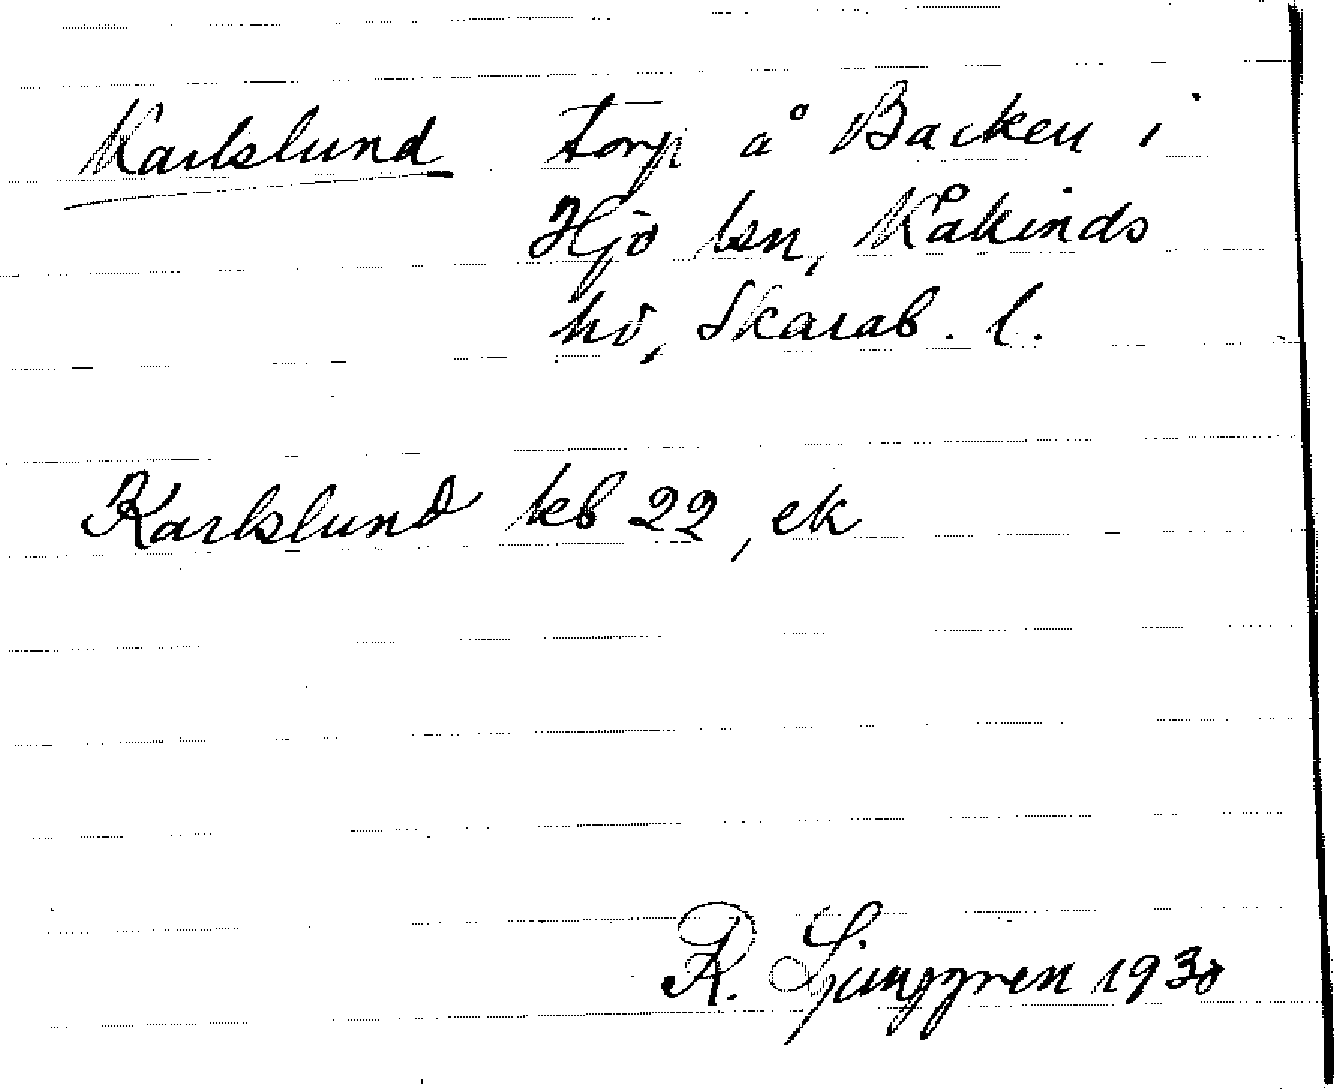 Karlslund torp å Backen i
Hjo lsn, Kåkinds
hd, Skarab. l.
Karlslund keb 22, ek
R. Ljunggren 1930